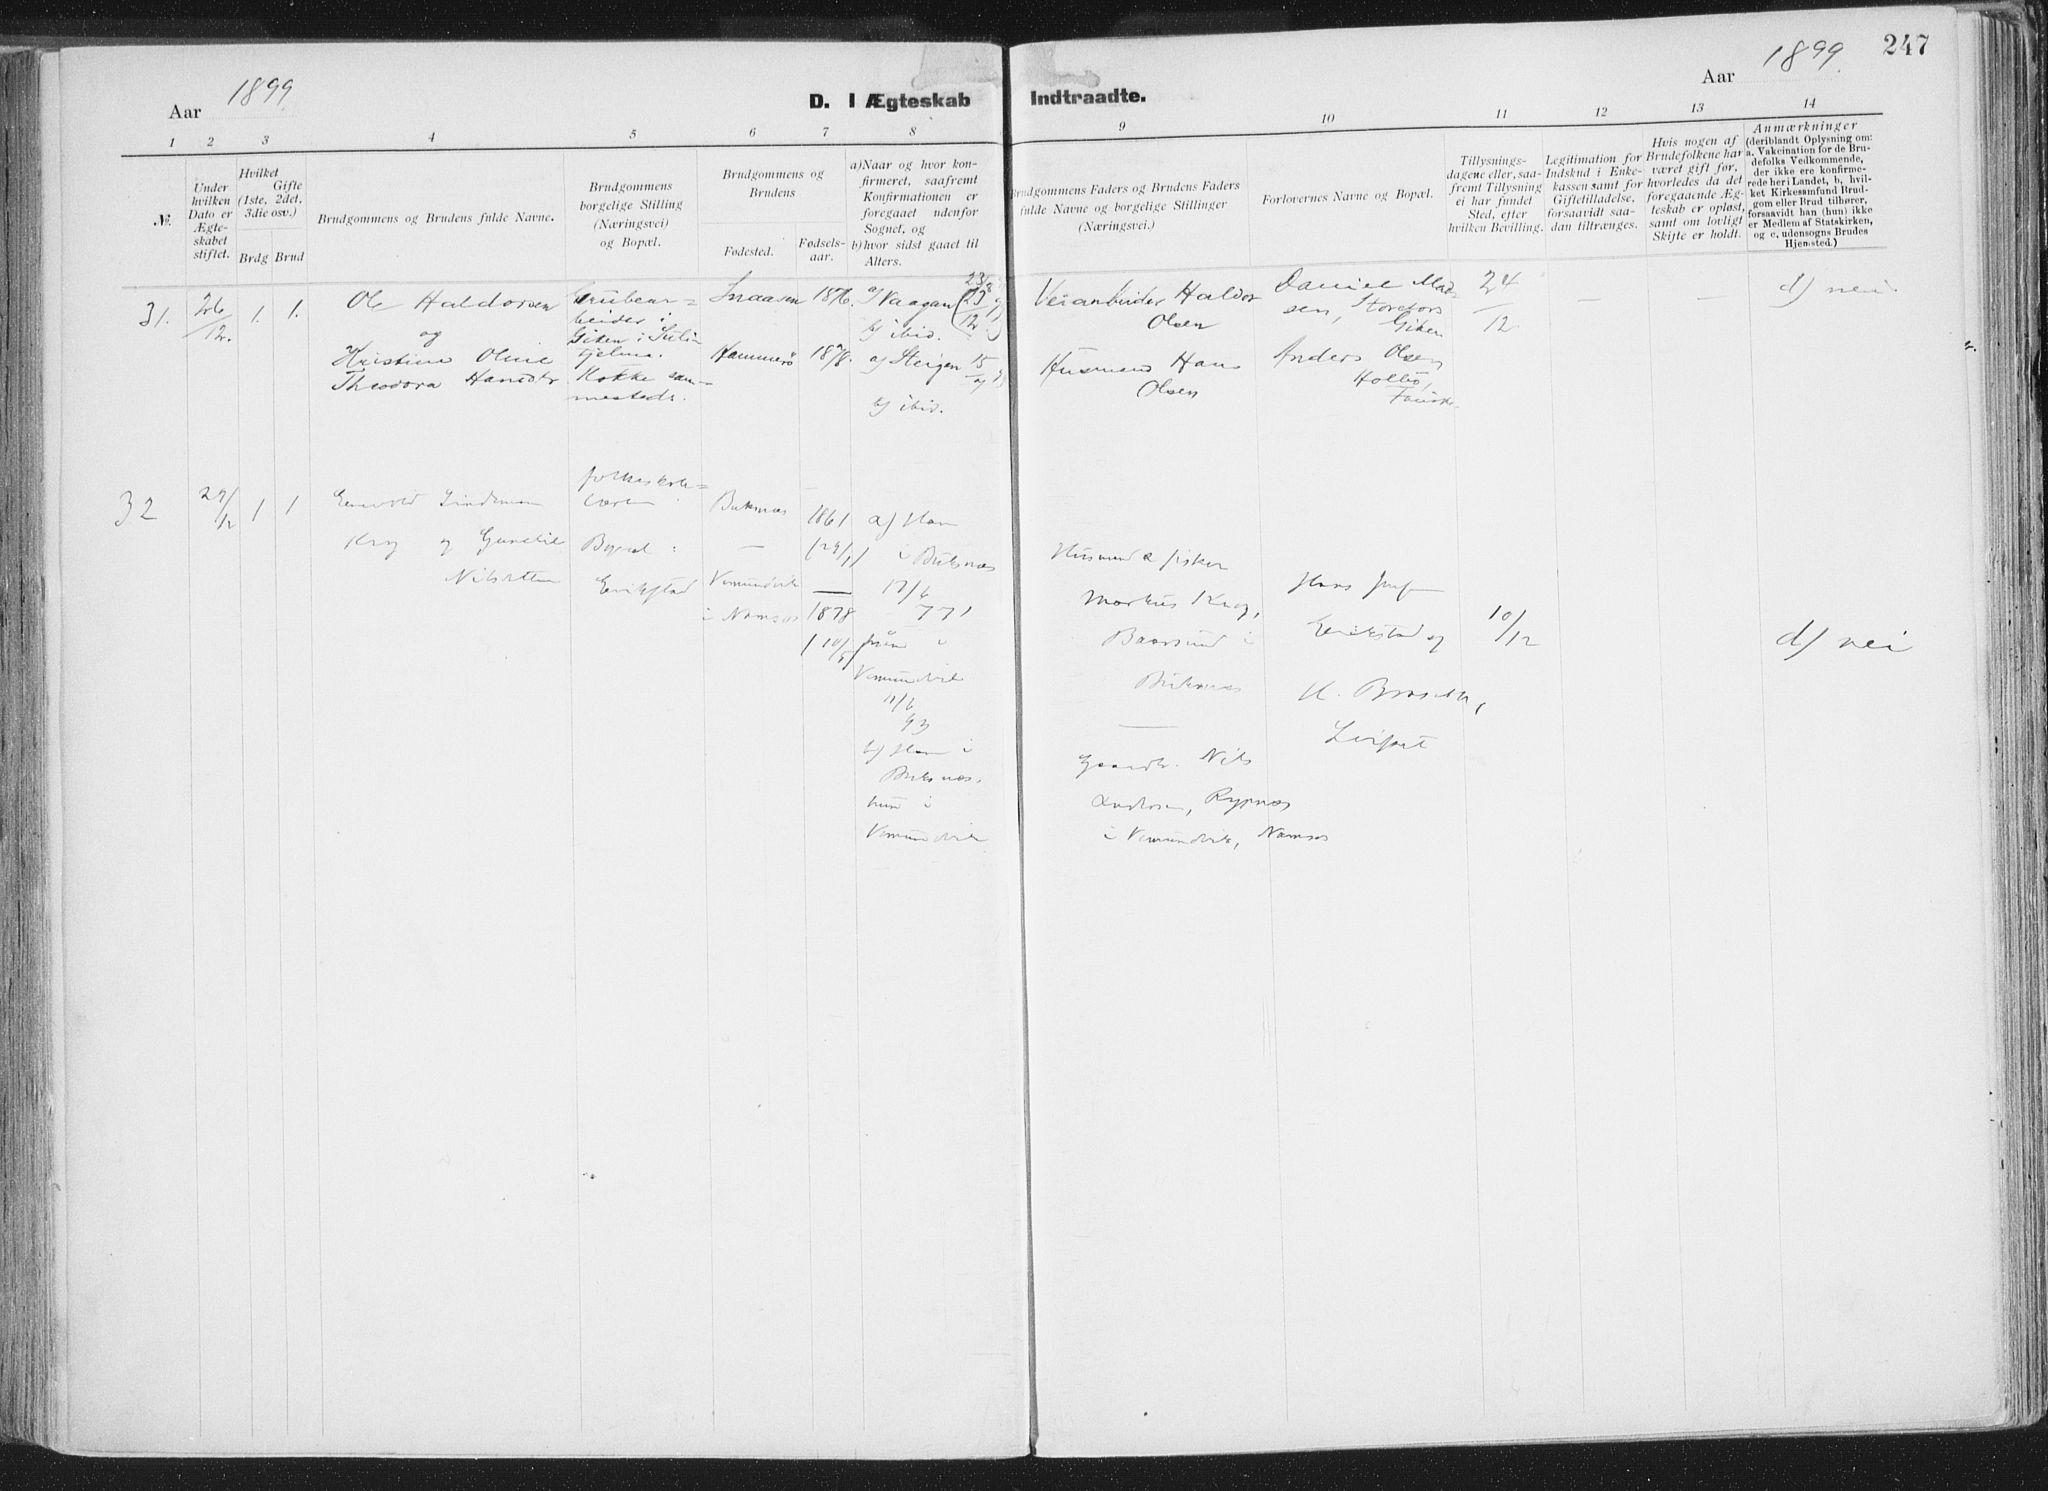 Aar 1899
D. I Ægteskab Indtraadte.
Aar 1899 247
1 2 3 4 5 6 7 8 9 10 11 12 13 14
№.
Under hvilken Dato er Ægteskabet stiftet.
Hvilket Gifte (1ste, 2det, 3die osv.)
Brdg Brud
Brudgommens og Brudens fulde Navne.
Brudgommens borgelige Stilling (Næringsvei) og Bopæl.
Brudgommens og Brudens
Fødested.
Fødselsaar.
a) Naar og hvor konfirmeret, saafremt Konfirmationen er foregaaet udenfor Sognet, og
b) hvor sidst gaaet til Alters.
Brudgommens Faders og Brudens Faders fulde Navne og borgelige Stillinger (Næringsvei.)
Forlovernes Navne og Bopæl.
Tillysningsdagene eller, saafremt Tillysning ei har fundet Sted, efter hvilken Bevilling.
Legitimation for Indskud i Enkekassen samt for Giftetilladelse, forsaavidt saadan tiltrænges.
Hvis nogen af Brudefolkene har været gift før, hvorledes da det foregaaende Ægteskab er opløst, samt om lovligt Skifte er holdt.
Anmærkninger (deriblandt Oplysning om: a. Vakcination for de Brudefolks Vedkommende, der ikke ere konfirmerede her i Landet, b, hvilket Kirkesamfund Brudgom eller Brud tilhører, forsaavidt han (hun) ikke er Medlem af Statskirken, og c, udensogns Brudes Hjemsted.)
31. 26/12. 1. 1.
Ole Haldorsen
og
Kristine Oline
Theodora Hansdtr
Grubear=
beider i
Giken i Sulitjelma.
Kokke sam=
mesteds.
Snaasen 1876.
Hammerø 1878.
a) Vaagan
b) ibid.
a) Steigen 15/
b) ibid.
Veiarbeider Haldor
Olsen
Husmand Hans
Olsen
Daniel Mad
sen, Storefors
Giken
Anders Olsen
Fauske.
24/12
— —
d) nei.
32 29/12 1 1
Lindeman
Krog og
Nilsdatter
folkeskole=
lærer
Bopæl:
Erikstad
Buksnæs
—
Vemundvik
i Namsos
1861
(29/1)
—
1878
a) Ham
i Buksnæs
17/6
77,
i
Vemundvik
11/6
93
b) Ham i
Buksnæs,
hun i
Vemundvik
Husmand & fisker
Markus Krog,
i
Buksnæs
—
Gaardbr. Nils
Rypnæs
i Vemundvik, Namsos
Hans
Erikstad og
10/12
d) nei